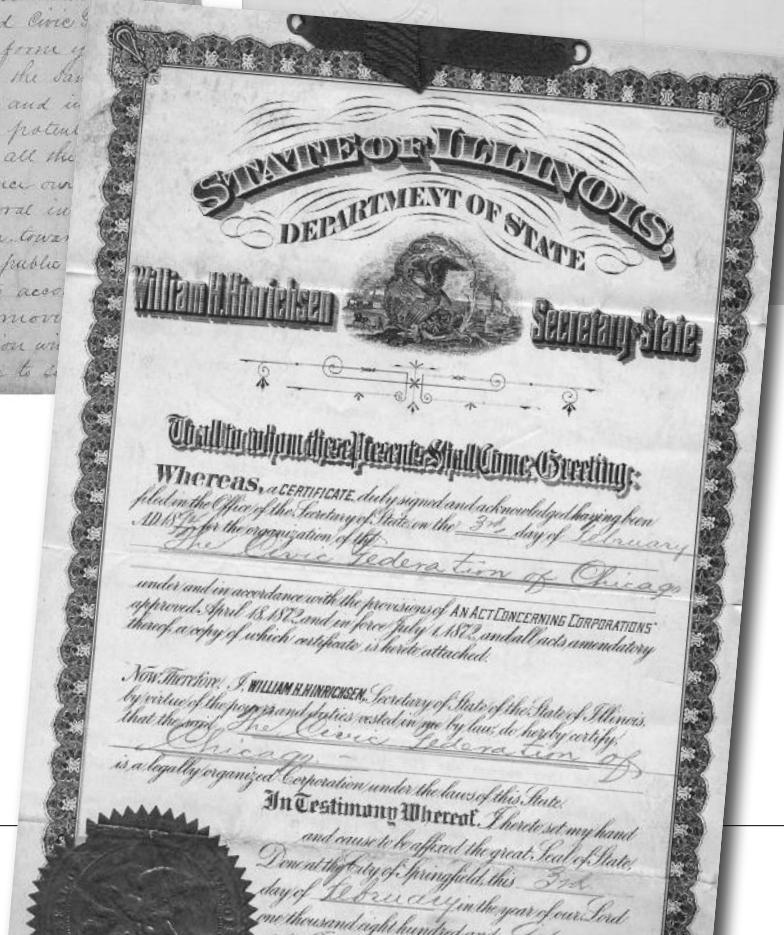 d Civic
form y
the san
and in
potent
all the
our
oral in
towar
public
acco
mov
on un
to
STATE OF ILLINOIS,
DEPARTMENT OF STATE
William H. Hinrichsen Secretary of State
To all to whom these Presents Shall Come Greeting:
Whereas, a CERTIFICATE, duly signed and acknowledged having been
filed in the Office of the Secretary of State, on the 3rd day of February
A.D. 18 for the organization of the
The Civic Federation of Chicago
under and in accordance with the provisions of AN ACT CONCERNING CORPORATIONS"
approved April 18, 1872, and in force July 1, 1872, and all acts amendatory
thereof, a copy of which certificate is hereto attached.
Now Therefore, I, WILLIAM H. HINRICHSEN, Secretary of State of the State of Illinois,
by virtue of the powers and duties vested in me by law, do hereby certify,
that the said The Civic Federation of
Chicago
is a legally organized Corporation under the laws of this State.
In Testimony Whereof, I hereto set my hand
and cause to be affixed the great Seal of State,
Done at the City of Springfield, this 3rd
day of February in the year of our Lord
one thousand eight hundred and